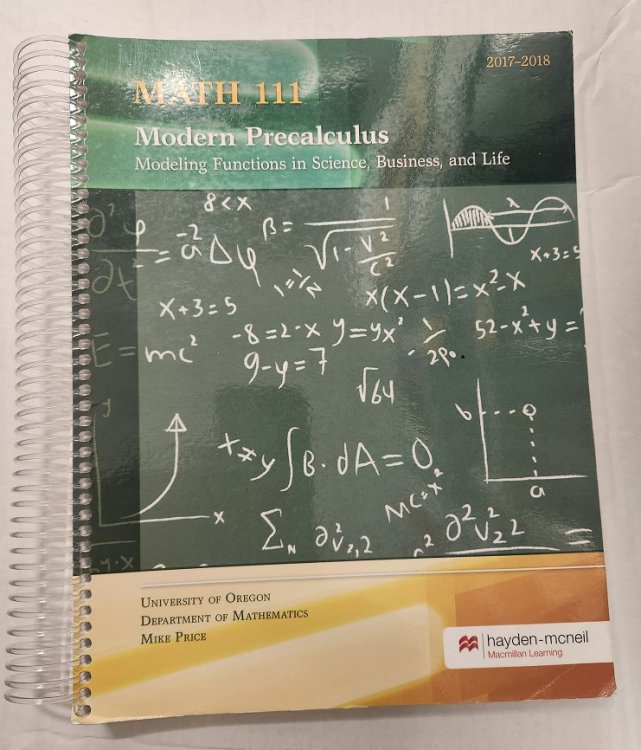 2017–2018
MATH 111
Modern Precalculus
Modeling Functions in Science, Business, and Life
8 < x
β = 1
√1 - v²
c²
λ
∂² φ
∂t
= a⁻² Δφ
1 = 1/2
x + 3 = 5
x + 3 = 5
x(x - 1) = x² - x
E = mc²
-8 = 2 - x
y = yx²
52 - x² + y =
9 - y = 7
√64
b
a
y
x
x ≠ y
∫B · dA = 0
Σ N
UNIVERSITY OF OREGON
DEPARTMENT OF MATHEMATICS
MIKE PRICE
hayden-mcneil
Macmillan Learning